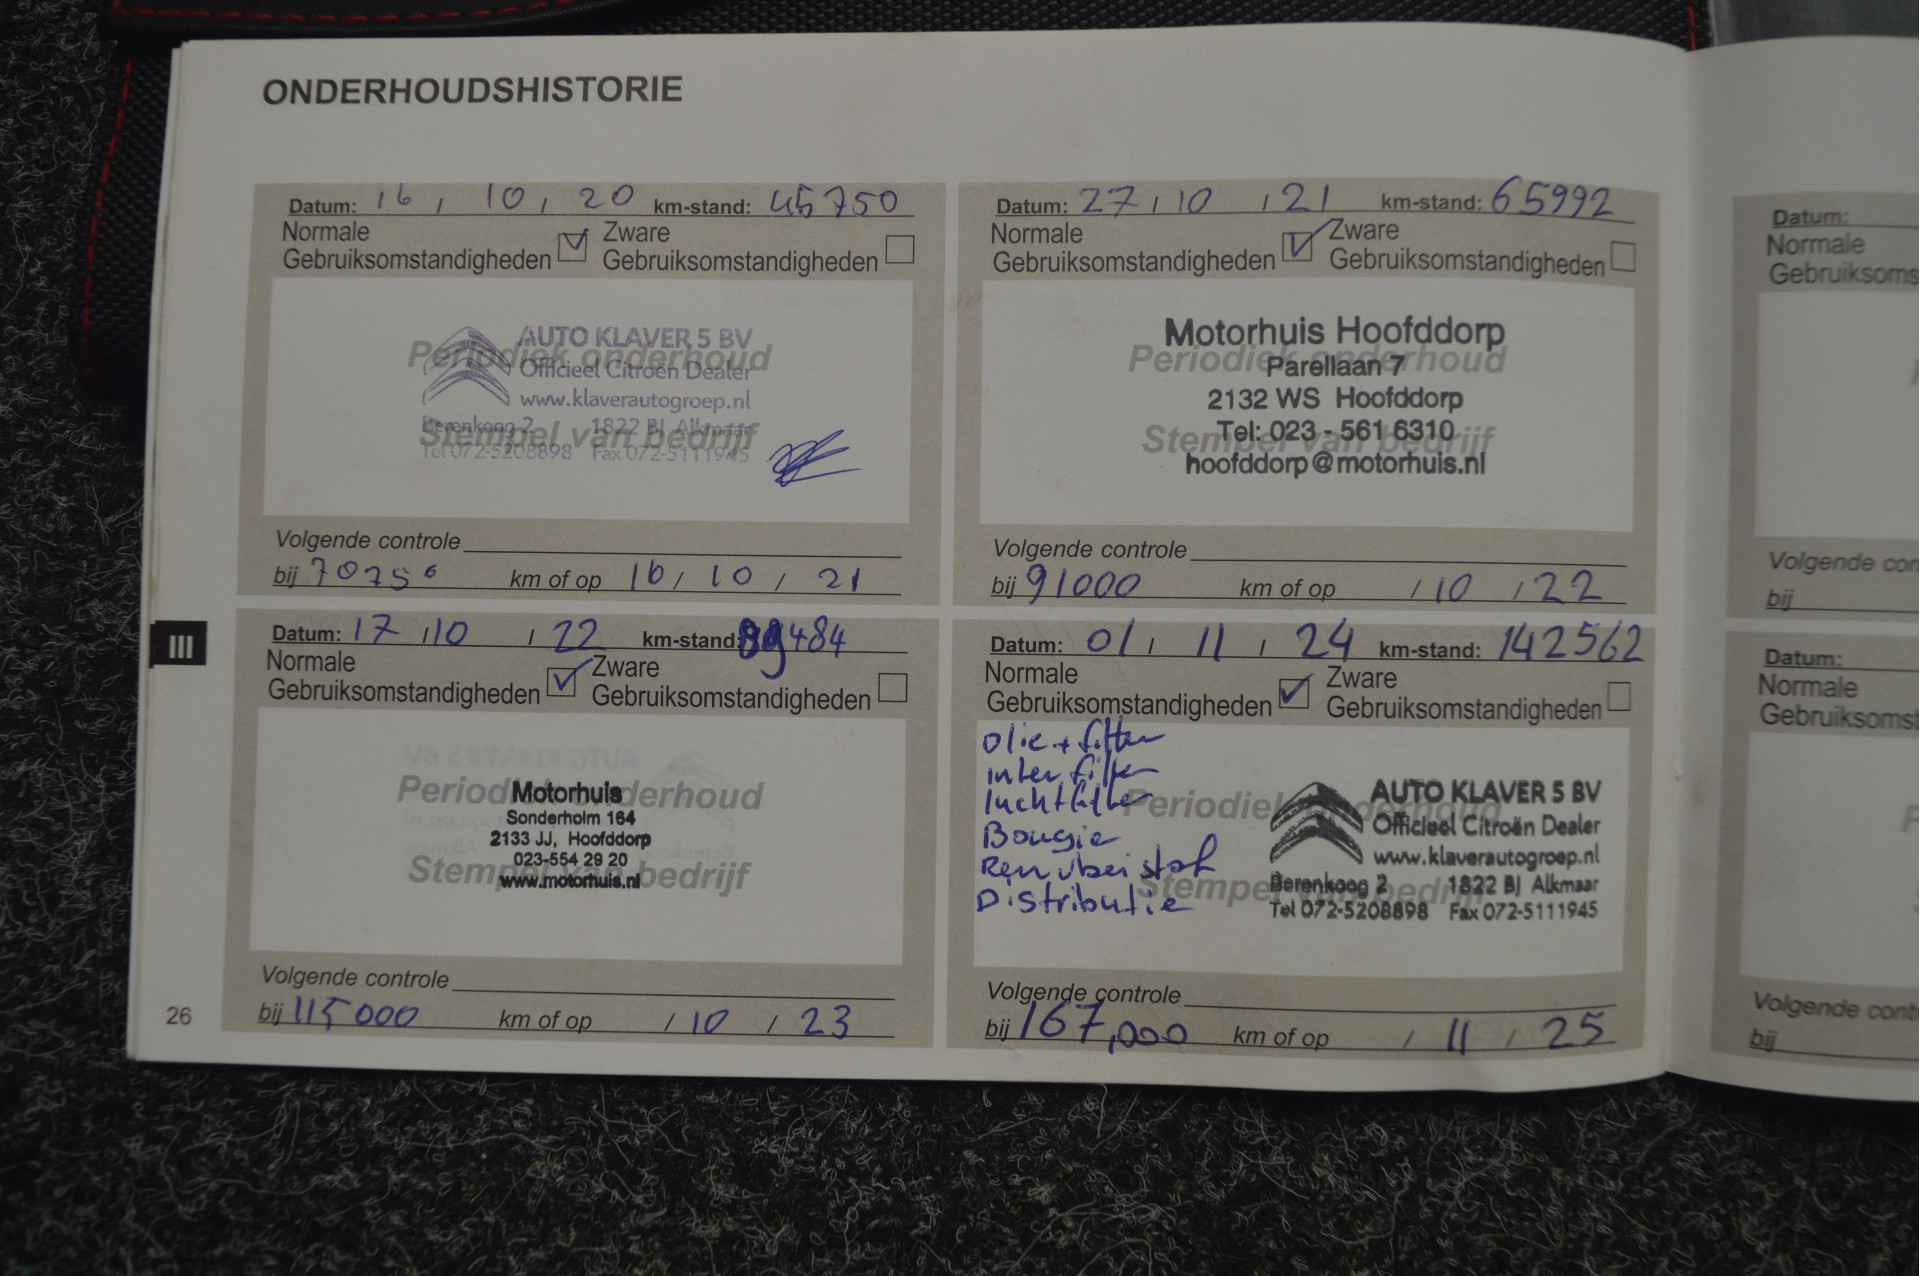 ONDERHOUDSHISTORIE
Datum: 16 / 10 / 20 km-stand: 45750
Normale Gebruiksomstandigheden Zware Gebruiksomstandigheden
Periodiek onderhoud
Stempel van bedrijf
AUTO KLAVER 5 BV
Officieel Citroën Dealer
www.klaverautogroep.nl
Berenkoog 2 1822 BJ Alkmaar
Tel 072-5208898 Fax 072-5111945
Volgende controle
bij 70750 km of op 16 / 10 / 21
Datum: 27 / 10 / 21 km-stand: 65992
Normale Gebruiksomstandigheden Zware Gebruiksomstandigheden
Periodiek onderhoud
Stempel van bedrijf
Motorhuis Hoofddorp
Parellaan 7
2132 WS Hoofddorp
Tel: 023 - 561 6310
hoofddorp@motorhuis.nl
Volgende controle
bij 91000 km of op / 10 / 22
Datum: 17 / 10 / 22 km-stand: 89484
Normale Gebruiksomstandigheden Zware Gebruiksomstandigheden
Periodiek onderhoud
Stempel van bedrijf
Motorhuis
Sonderholm 164
2133 JJ, Hoofddorp
023-554 29 20
www.motorhuis.nl
Volgende controle
bij 115000 km of op / 10 / 23
Datum: 01 / 11 / 24 km-stand: 142562
Normale Gebruiksomstandigheden Zware Gebruiksomstandigheden
Periodiek onderhoud
Stempel van bedrijf
Olie + filter
inter filter
luchtfilter
Bougie
Distributie
AUTO KLAVER 5 BV
Officieel Citroën Dealer
www.klaverautogroep.nl
Berenkoog 2 1822 BJ Alkmaar
Tel 072-5208898 Fax 072-5111945
Volgende controle
bij 167,000 km of op / 11 / 25
III
26
Datum:
Normale
Gebruiksoms
Volgende con
bij
Datum:
Normale
Gebruiksomst
Volgende cont
bij